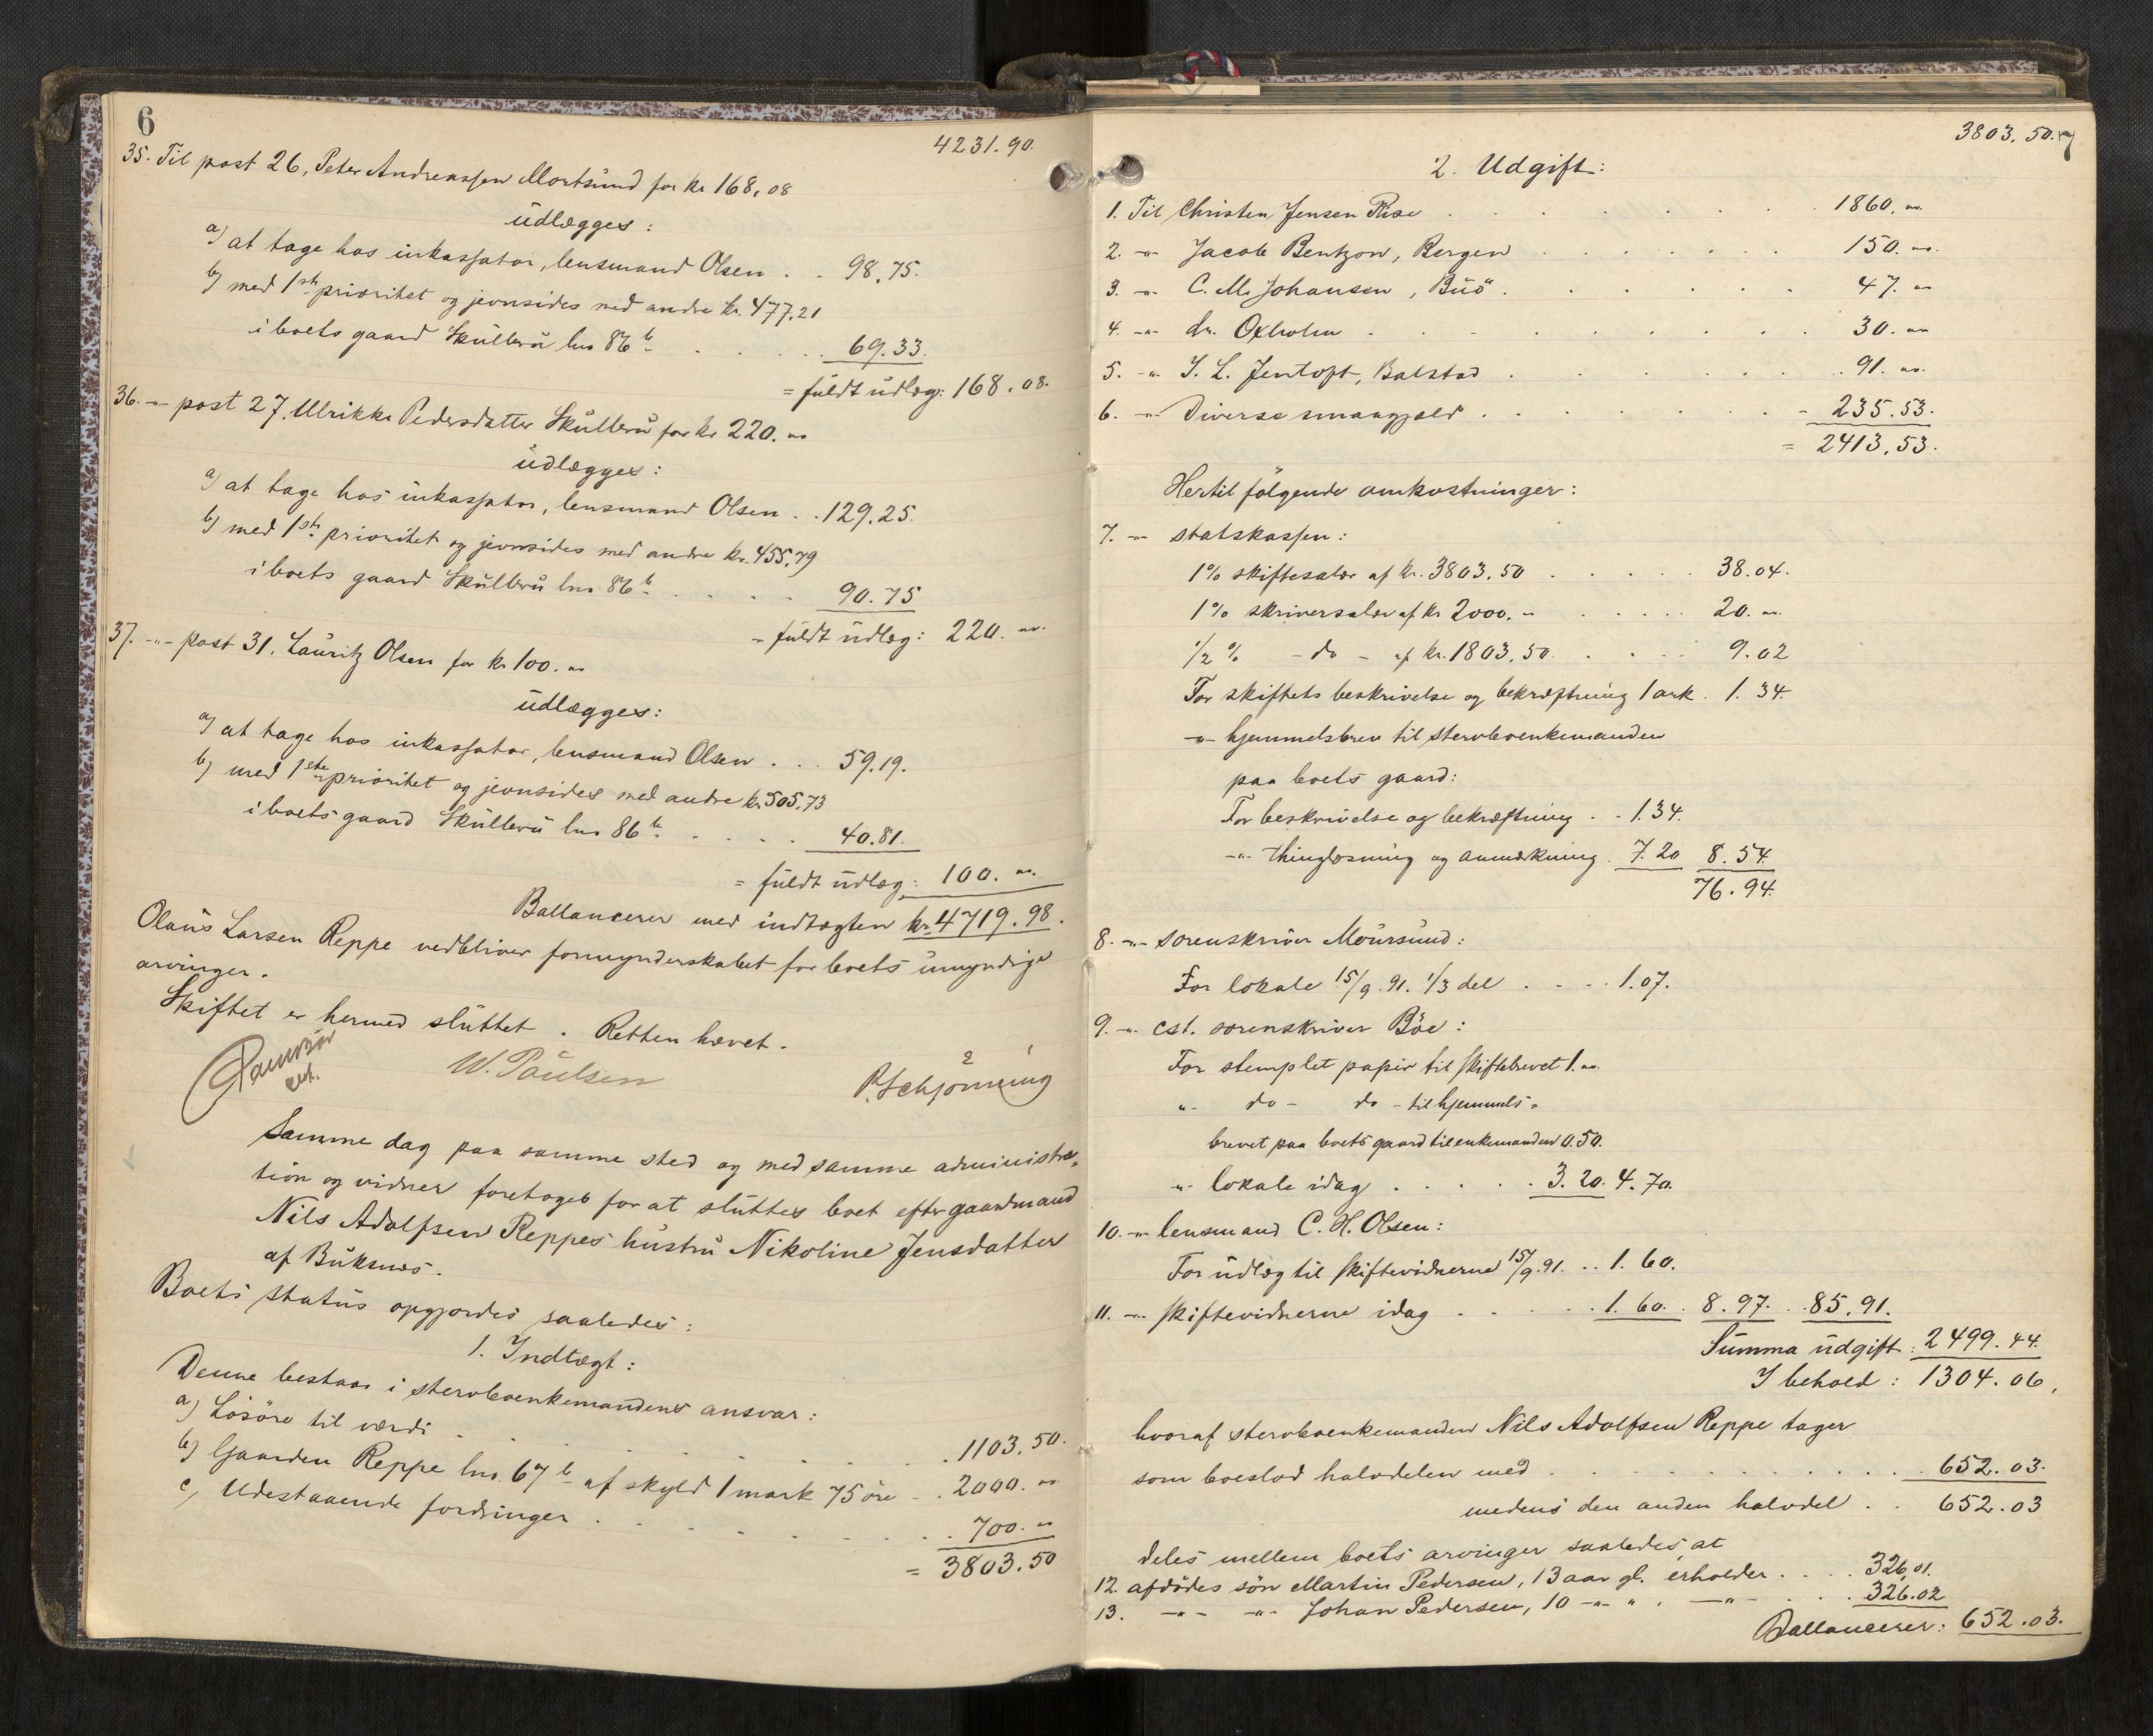 6
4231.90.
35. Til post 26, Peter Andreassen Mortsund for kr 168,08
udlægges:
a) at tage hos inkassator, lensmand Olsen . . 98.75.
b) med 1ste prioritet og jevnsides med andre kr. 477.21
i boets gaard Skullbru lno 86 b . . . . 69.33.
= fuldt udlæg: 168.08.
36. -"- post 27. Ulrikke Pedersdatter Skullbru for kr 220. "
udlægges:
a) at tage hos inkassator, lensmand Olsen . . 129.25.
b) med 1ste prioritet og jevnsides med andre kr. 455,79
i boets gaard Skullbru lno 86 b . . . . 90.75
= fuldt udlæg: 220. "
37. -"- post 31. Lauritz Olsen for kr 100. "
udlægges:
a) at tage hos inkassator, lensmand Olsen . . . 59.19.
b) med 1ste prioritet og jevnsides med andre kr 505,73
i boets gaard Skullbru lno 86 b . . . . 40.81.
= fuldt udlæg: 100. "
Ballancerer med indtægten kr. 4719.98.
Olaus Larsen Reppe vedbliver formynderskabet for boets umyndige
arvinger.
Skiftet er hermed sluttet. Retten hævet.
cst. W. Paulsen P. Schjønning
Samme dag paa samme sted og med samme administra-
tion og vidner foretoges for at sluttes boet efter gaardmand
Nils Adolfsen Reppes hustru Nikoline Jensdatter
af Buksnes.
Boets status opgjordes saaledes:
1. Indtægt:
Denne bestaar i stervboenkemandens ansvar:
a) Løsøre til værdi . . . . . . . 1103.50.
b) Gaarden Reppe lno. 67 b af skyld 1 mark 75 øre . . 2000. "
c) Udestaaende fordringer . . . . . . . 700. "
= 3803.50
3803.50. 7
2. Udgift:
1. Til Christen Jensen Rise . . . . . . . 1860. "
2. -"- Jacob Bentzon, Bergen . . . . . . 150. "
3. -"- C. M. Johansen, Buö . . . . . . 47. "
4. -"- dr. Oxholm . . . . . . . 30. "
5. -"- J. L. Jentoft, Balstad . . . . . . 91. "
6. -"- Diverse smaagjæld . . . . . . 235.53.
= 2413.53.
Hertil følgende omkostninger:
7. -"- statskassen:
1% skiftesalær af kr. 3803.50 . . . . 38.04.
1% skriversalær af kr 2000. " . . . . 20. "
1/2 % - do - af kr. 1803.50. . . . . 9.02
For skiftets beskrivelse og bekræftning 1 ark . 1.34.
-"- hjemmelsbrev til stervboenkemanden
paa boets gaard:
For beskrivelse og bekræftning . . 1.34.
-"- thinglæsning og anmærkning . 7.20 8.54.
76.94.
8. -"- sorenskriver Moursund:
For lokale 15/9.91. 1/3 del . . . . 1.07.
9. -"- cst. sorenskriver Böe:
For stemplet papir til skiftebrevet 1. "
"- do - do - til hjemmels-
brevet paa boets gaard til enkemanden 0.50.
-"- lokale idag . . . . . 3.20. 4.70.
10. -"- lensmand C. H. Olsen:
For udlæg til skiftevidnerne 15/9.91. . . 1.60.
11. -"- skiftevidnerne idag . . . . . 1.60. . 8.97. . 85.91.
Summa udgift: 2499.44.
I behold: 1304.06,
hvoraf stervboenkemanden Nils Adolfsen Reppe tager
som boeslod halvdelen med . . . . . . . . 652.03.
medens den anden halvdel . . 652.03
deles mellem boets arvinger saaledes, at
12. afdødes søn Martin Pedersen, 13 aar gl. erholder . . . . 326.01.
13. -"- -"- Johan Pedersen, 10 -"- " . -"- . . . 326.02
Ballancerer: 652.03.